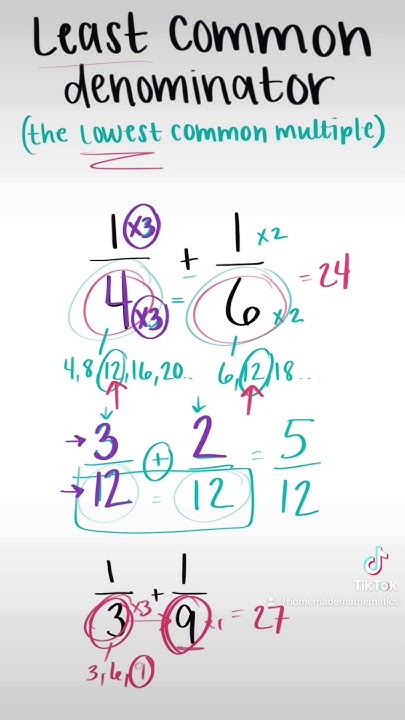 Least common
denominator
(the lowest common multiple)
1 x3 + 1 x2
4 x3 = 6 x2 = 24
4,8,12,16,20.. 6,12,18...
3 + 2 = 5
12 = 12 12
TikTok
@homemademathematics
1 + 1
3 x3 9 ×1 = 27
3,6,9